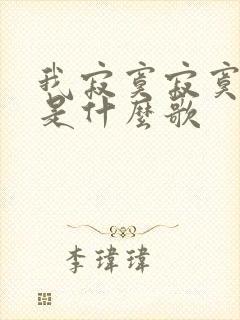 我寂寞寂寞
是什麼歌
李瑋瑋